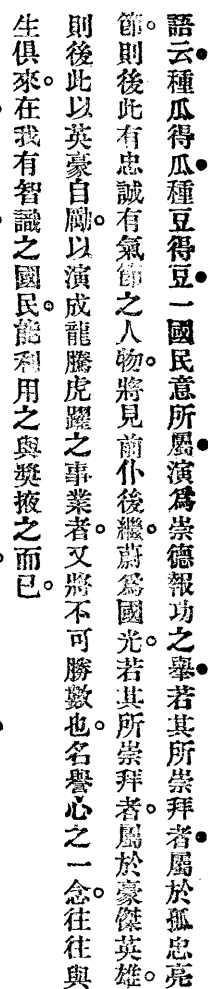 語云。種瓜得瓜。種豆得豆。一國民意所屬。演爲崇德報功之舉。若其所崇拜者。屬於孤忠亮
節。則後此有忠誠有氣節之人物。將見前仆後繼。蔚爲國光。若其所崇拜者。屬於豪傑英雄。
則後此以英豪自勵。以演成龍騰虎躍之事業者。又將不可勝數也。名譽心之一念。往往與
生俱來。在我有智識之國民。能利用之與獎掖之而已。